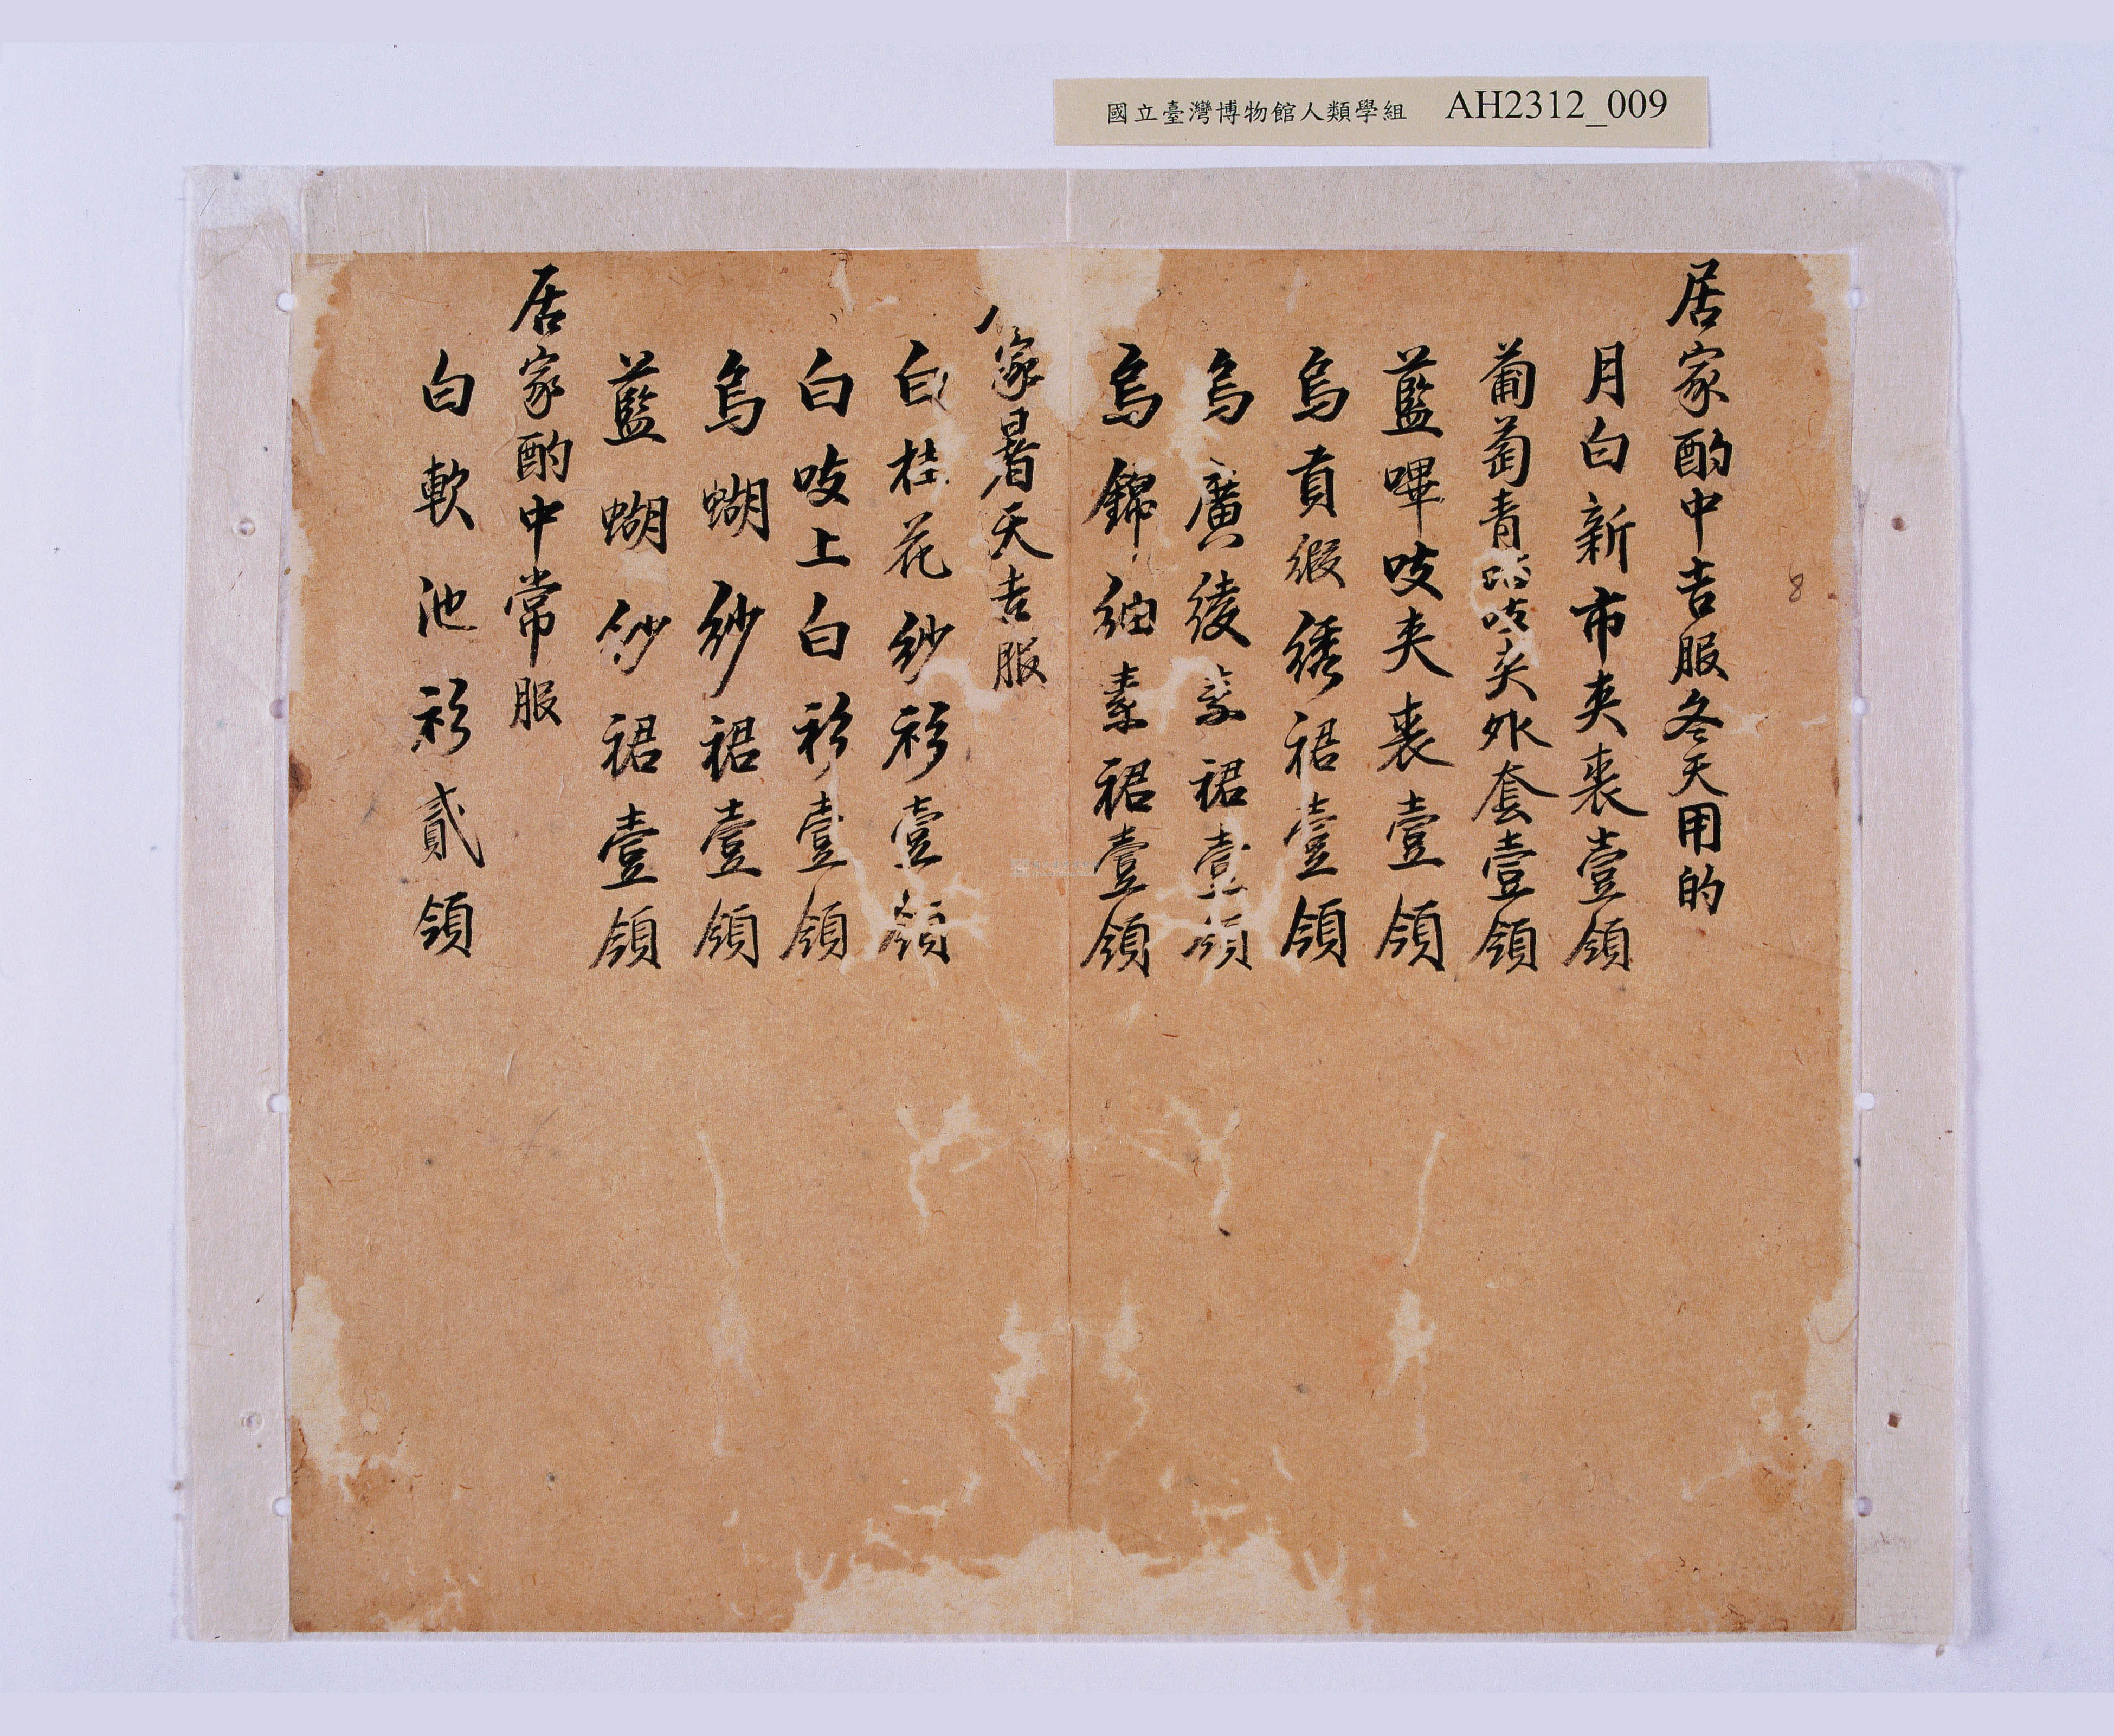 國立臺灣博物館人類學組 AH2312_009
8
居家酌中吉服冬天用的
月白新市夾裘壹領
葡萄青咕咕夾外套壹領
藍嗶吱夾裘壹領
烏貢緞綉裙壹領
烏廣綾素裙壹領
烏錦紬素裙壹領
家暑天吉服
白桂花紗衫壹領
白吱上白衫壹領
烏蝴紗裙壹領
藍蝴紗裙壹領
居家酌中常服
白軟池衫貳領